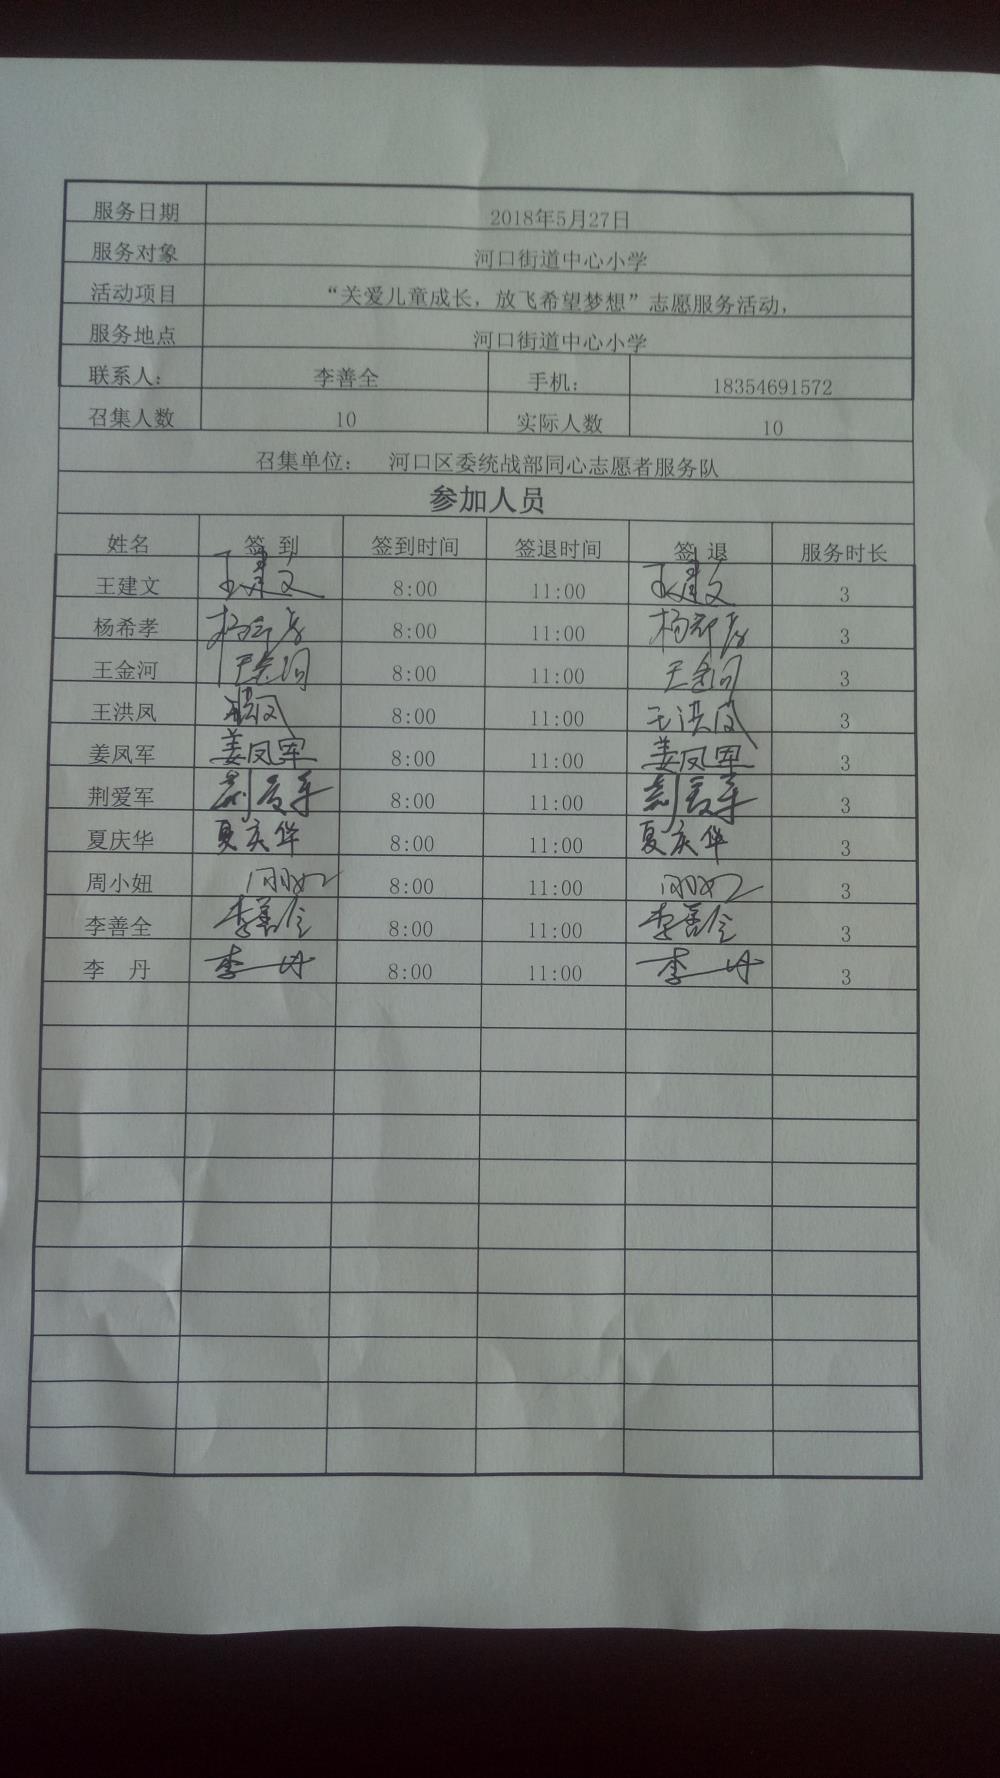 服务日期 2018年5月27日
服务对象 河口街道中心小学
活动项目 “关爱儿童成长，放飞希望梦想”志愿服务活动，
服务地点 河口街道中心小学
联系人： 李善全 手机： 18354691572
召集人数 10 实际人数 10
召集单位： 河口区委统战部同心志愿者服务队
参加人员
姓名 签 到 签到时间 签退时间 签 退 服务时长
王建文 王建文 8:00 11:00 王建文 3
杨希孝 杨希孝 8:00 11:00 杨希孝 3
王金河 王金河 8:00 11:00 王金河 3
王洪凤 王洪凤 8:00 11:00 王洪凤 3
姜凤军 姜凤军 8:00 11:00 姜凤军 3
荆爱军 荆爱军 8:00 11:00 荆爱军 3
夏庆华 夏庆华 8:00 11:00 夏庆华 3
周小妞 8:00 11:00 3
李善全 李善全 8:00 11:00 李善全 3
李 丹 李丹 8:00 11:00 李丹 3